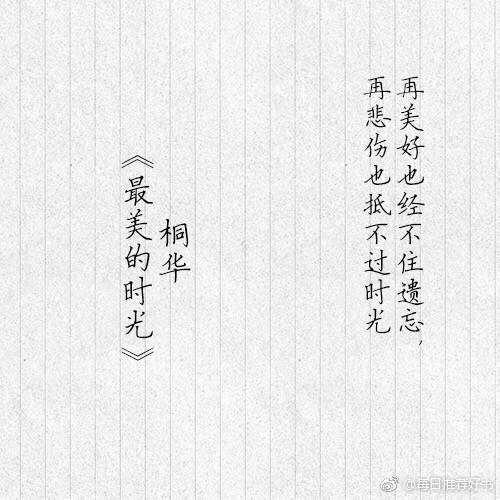 再美好也经不住遗忘，
再悲伤也抵不过时光
桐华
《最美的时光》
@每日推荐好书